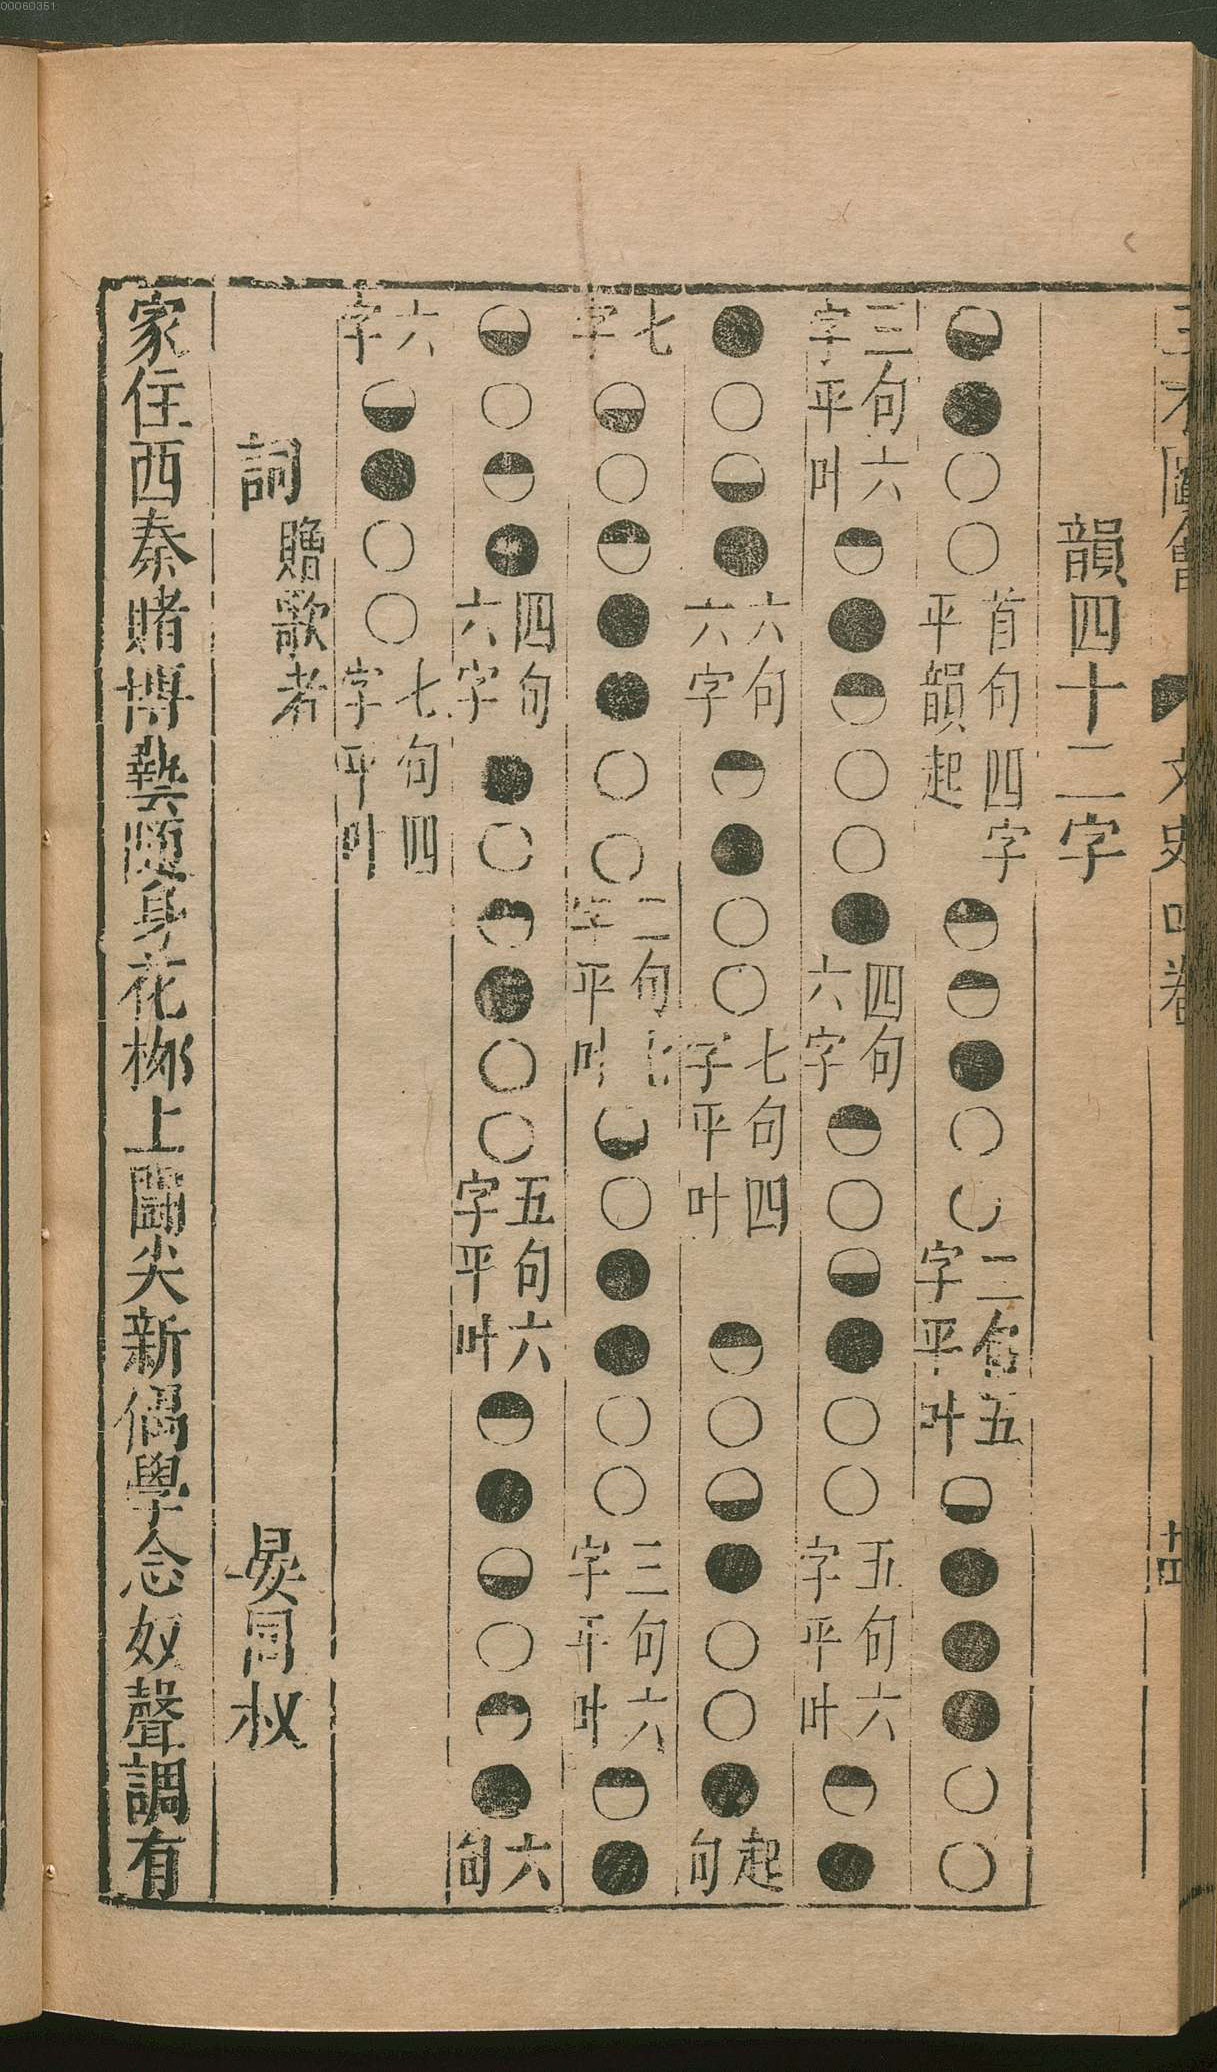 三才圖會 文史四卷 十四
韻四十二字
首句四字平韻起 二句五字平叶
三句六字平叶 四句六字 五句六字平叶
六句六字 七句四字平叶 起句
七字 二句七字平叶 三句六字平叶
四句六字 五句六字平叶 六句
六字 七句四字平叶
詞 贈歌者 晏同叔
家住西秦賭博藝隨身花柳上鬪尖新偶學念奴聲調有